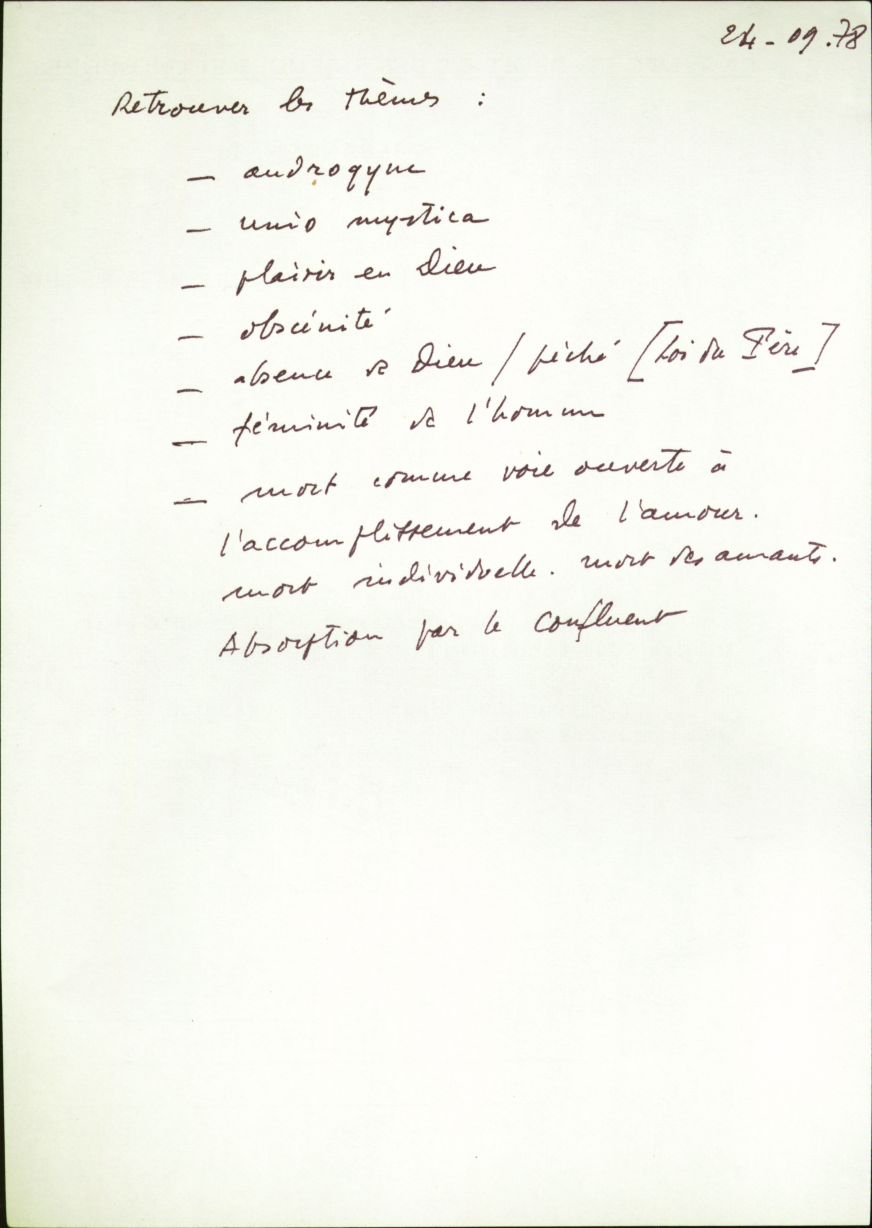 24-09.78
Retrouver les thèmes :
— androgyne
— unio mystica
— plaisir en Dieu
— obscénité
— absence de Dieu / péché [Loi du Père]
— féminité de l'homme
— mort comme voie ouverte à
l'accomplissement de l'amour.
mort individuelle. mort des amants.
Absorption par le confluent